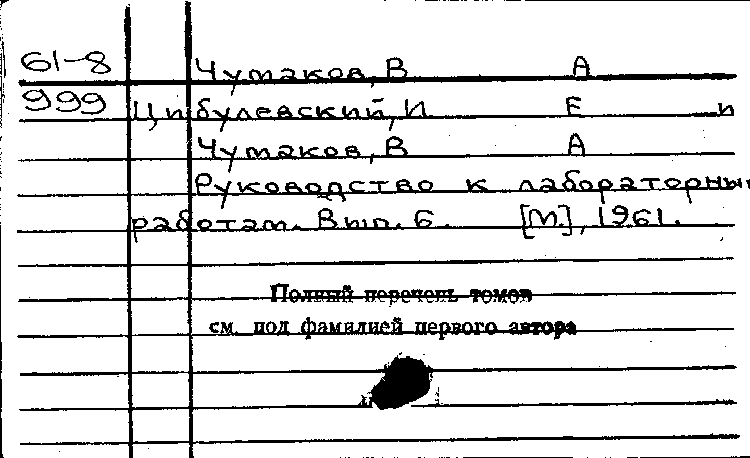 61-8 Чумаков, В А
999 Цибулевский, И Е и
Чумаков, В А
Руководство к лабораторны
работам. Вып. 6. [М.], 1961.
Полный перечень томов
см. под фамилией первого автора